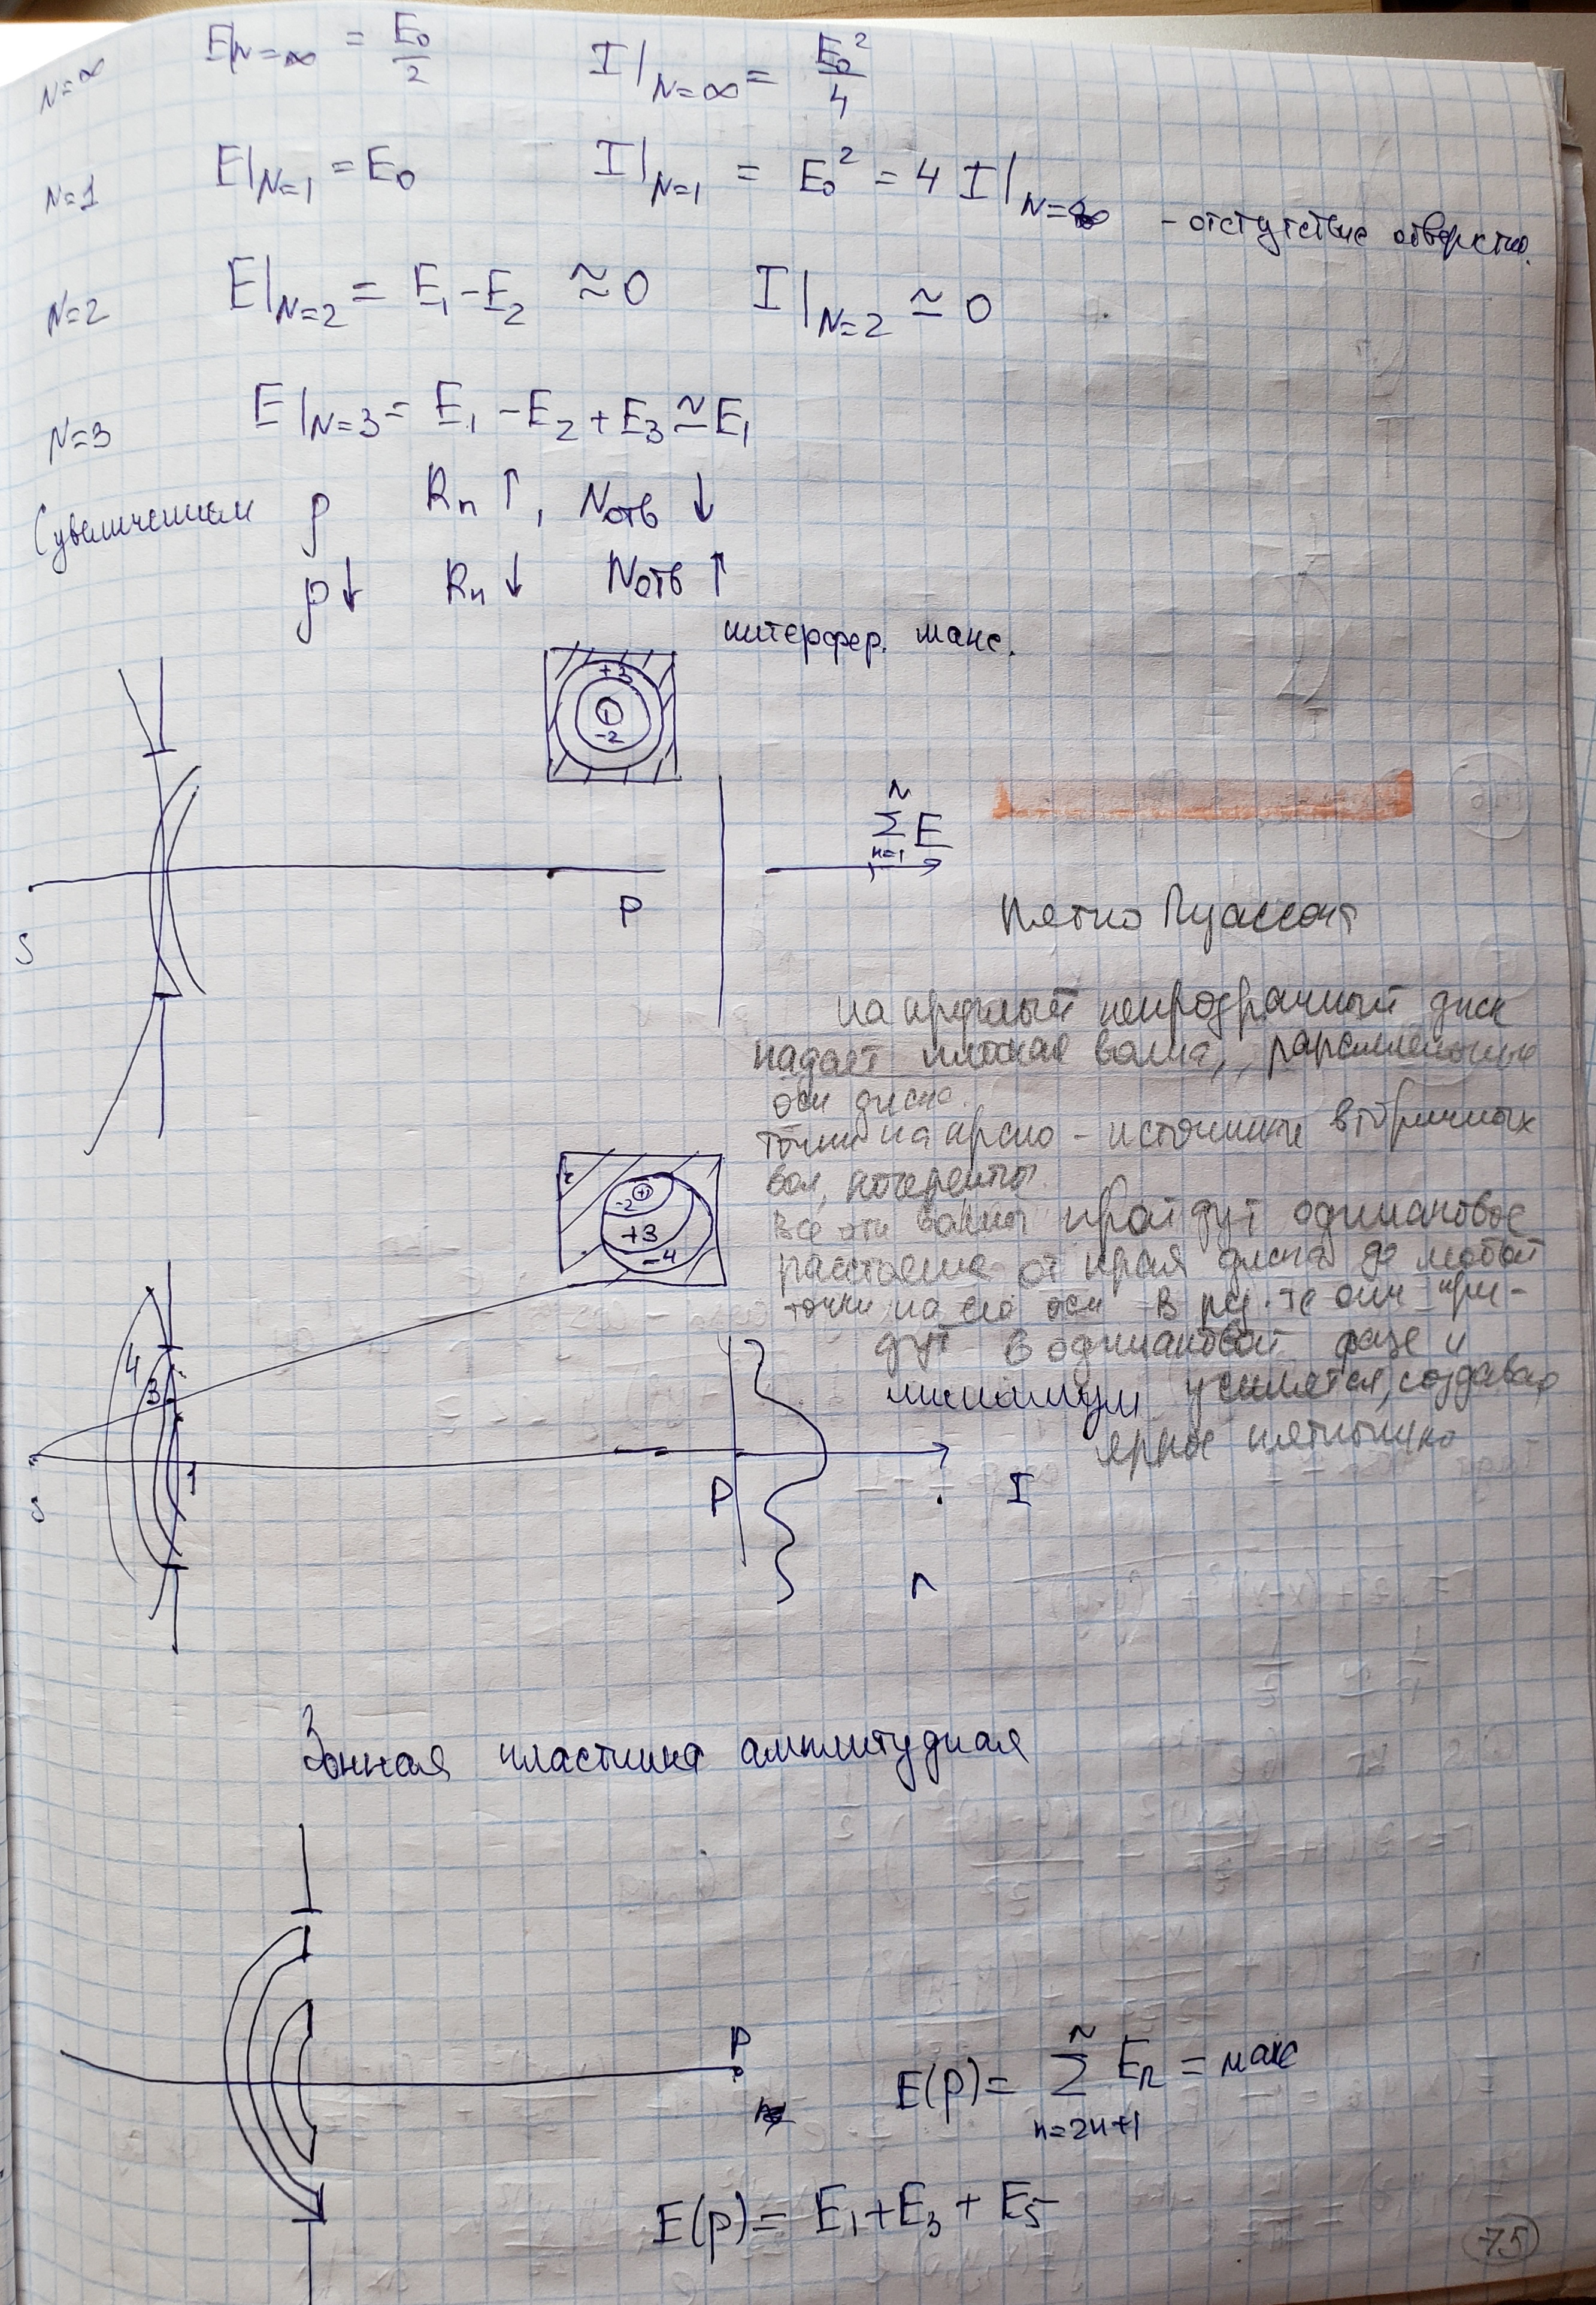 N=∞ E|N=∞ = E₀/2 I|N=∞ = E₀²/4
N=1 E|N=1 = E₀ I|N=1 = E₀² = 4 I|N=∞ - отсутствие отверстия.
N=2 E|N=2 = E₁ - E₂ ≈ 0 I|N=2 ≃ 0
N=3 E|N=3 = E₁ - E₂ + E₃ ≃ E₁
С увеличением ρ Rn ↑, Nотв ↓
ρ↓ Rn ↓ Nотв ↑
интерфер. макс.
+3
1
-2
N
Σ E
n=1
S
P
Пятно Пуассона
На круглый непрозрачный диск
падает плоская волна, параллельная
оси диска.
Точки на краю - источники вторичных
волн, когерентны.
Все эти волны пройдут одинаковое
расстояние от края диска до любой
точки на его оси. В рез-те они при-
дут в одинаковой фазе и
минимум усилятся, создавая
яркое пятнышко
+1
-2
+3
-4
4
3
1
S
P
I
Зонная пластинка амплитудная
P
E(p) = Σ En = макс
N
n=2n+1
E(p) = E₁ + E₃ + E₅
75